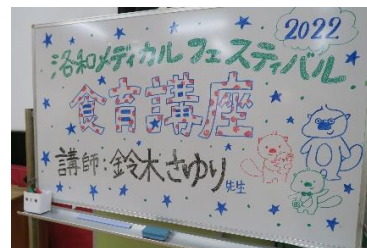 2022
洛和メディカルフェスティバル
食育講座
講師:鈴木さゆり先生